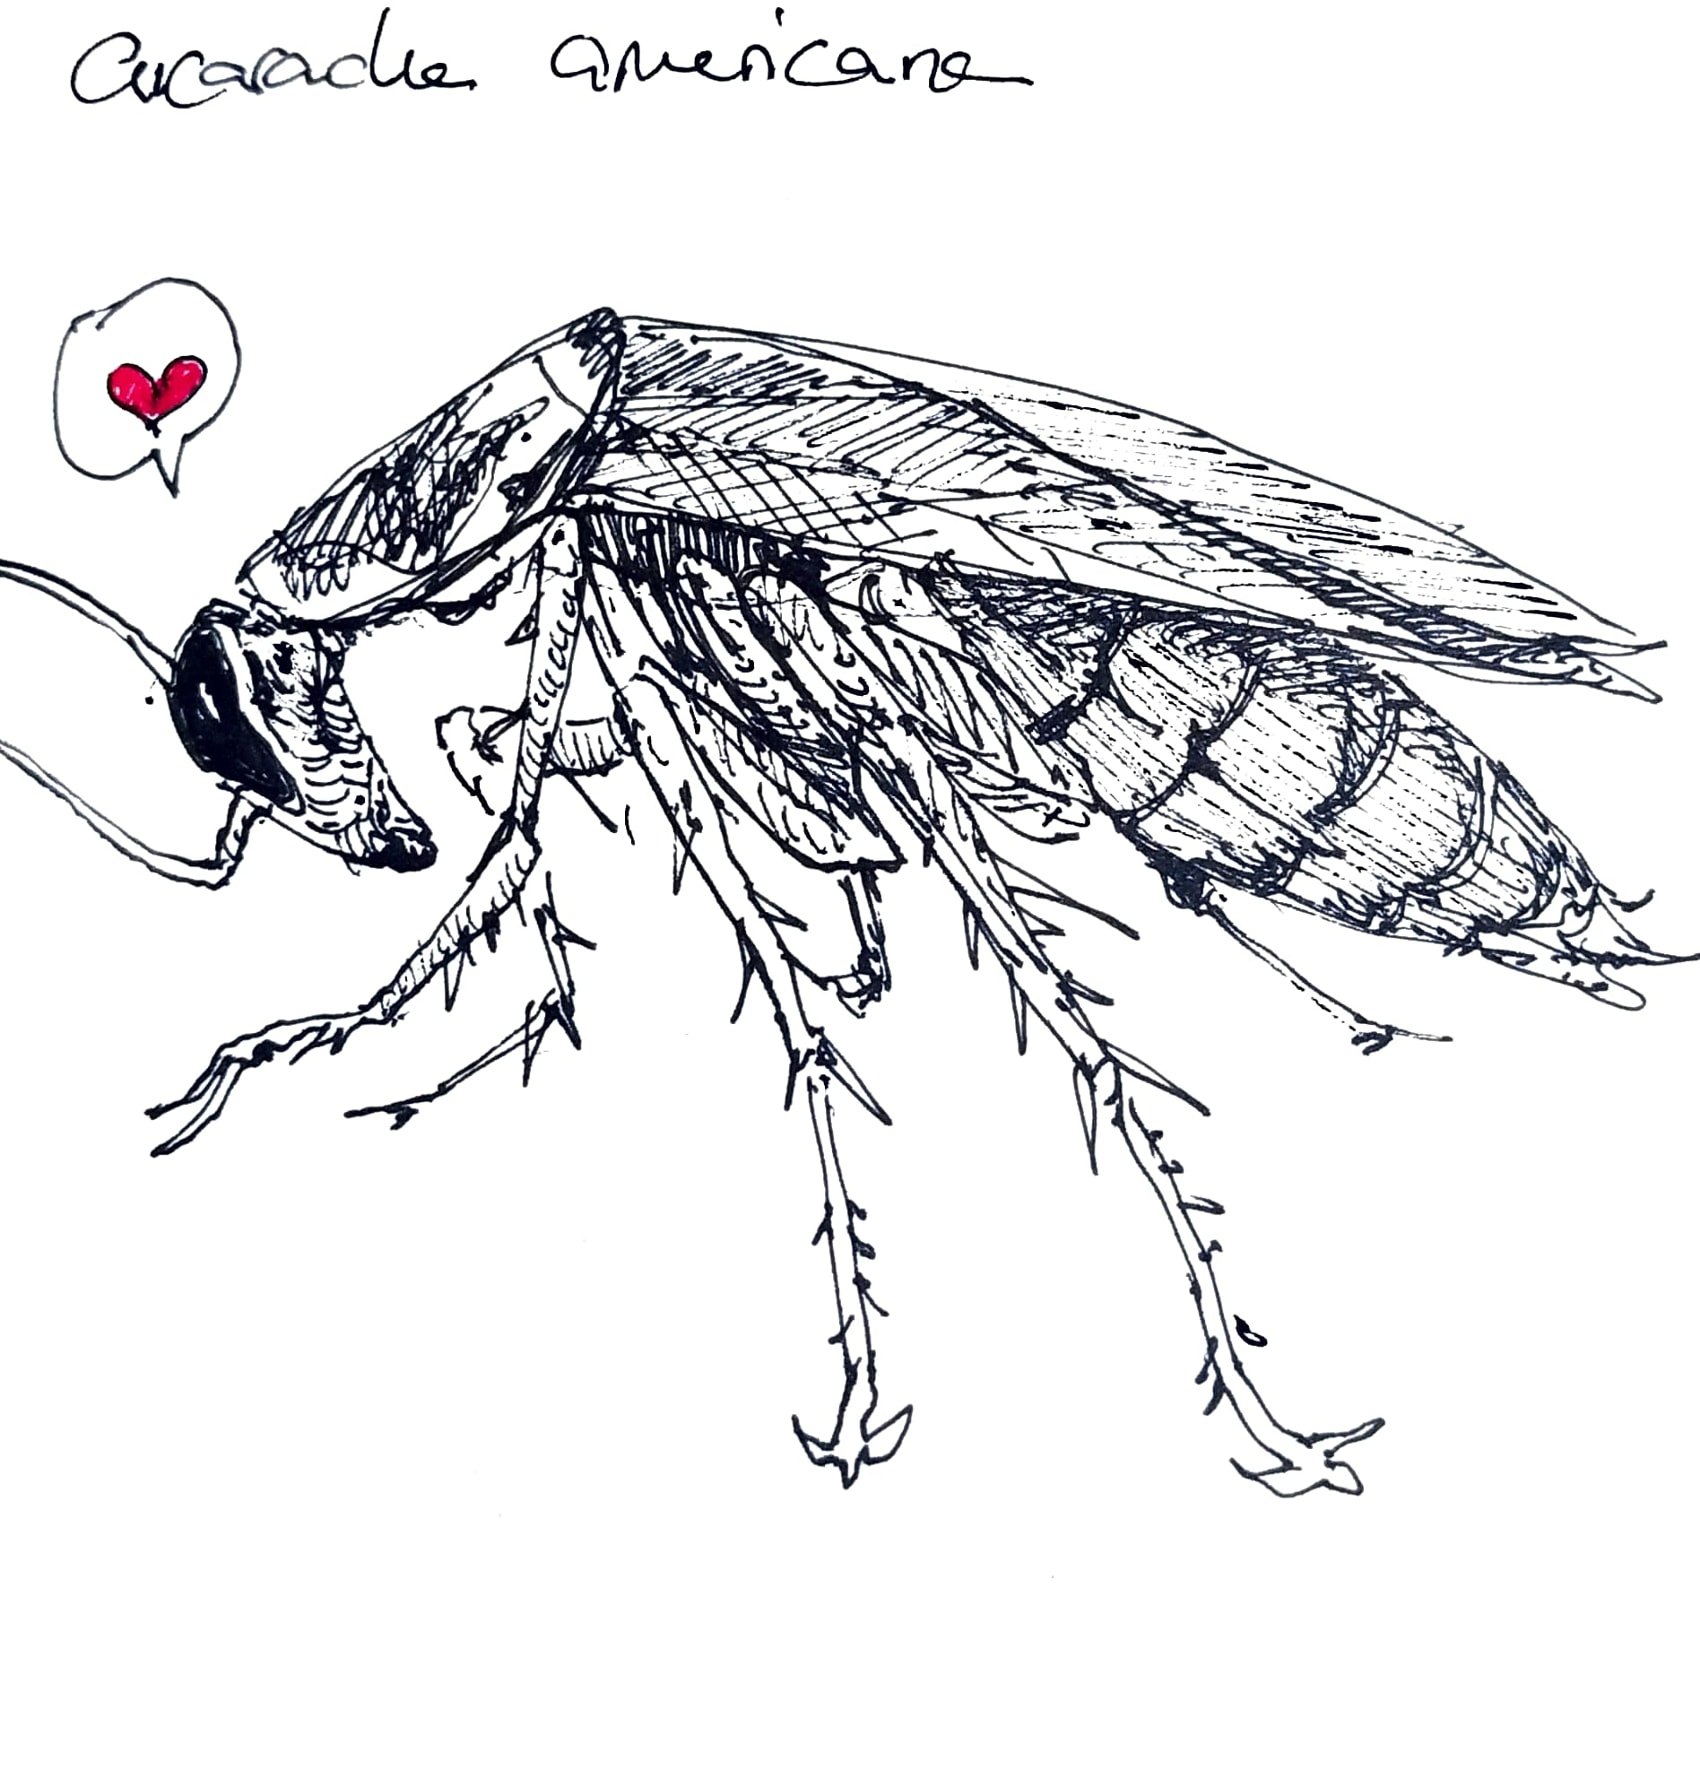 Cucaracha americana